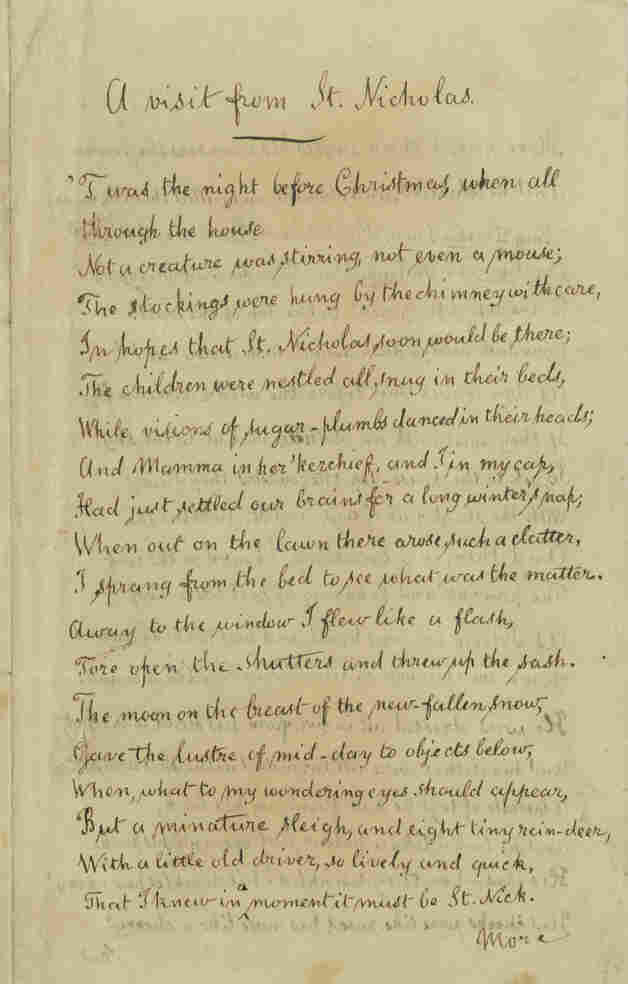 A visit from St. Nicholas.
'Twas the night before Christmas, when all
through the house
Not a creature was stirring, not even a mouse;
The stockings were hung by the chimney with care,
In hopes that St. Nicholas soon would be there;
The children were nestled all snug in their beds,
While visions of sugar-plumbs danced in their heads;
And Mamma in her 'kerchief, and I in my cap,
Had just settled our brains for a long winter's nap;
When out on the lawn there arose such a clatter,
I sprang from the bed to see what was the matter.
Away to the window I flew like a flash,
Tore open the shutters and threw up the sash.
The moon on the breast of the new-fallen snow,
Gave the lustre of mid-day to objects below,
When, what to my wondering eyes should appear,
But a minature sleigh, and eight tiny rein-deer,
With a little old driver, so lively and quick,
That I knew in a moment it must be St. Nick.
More